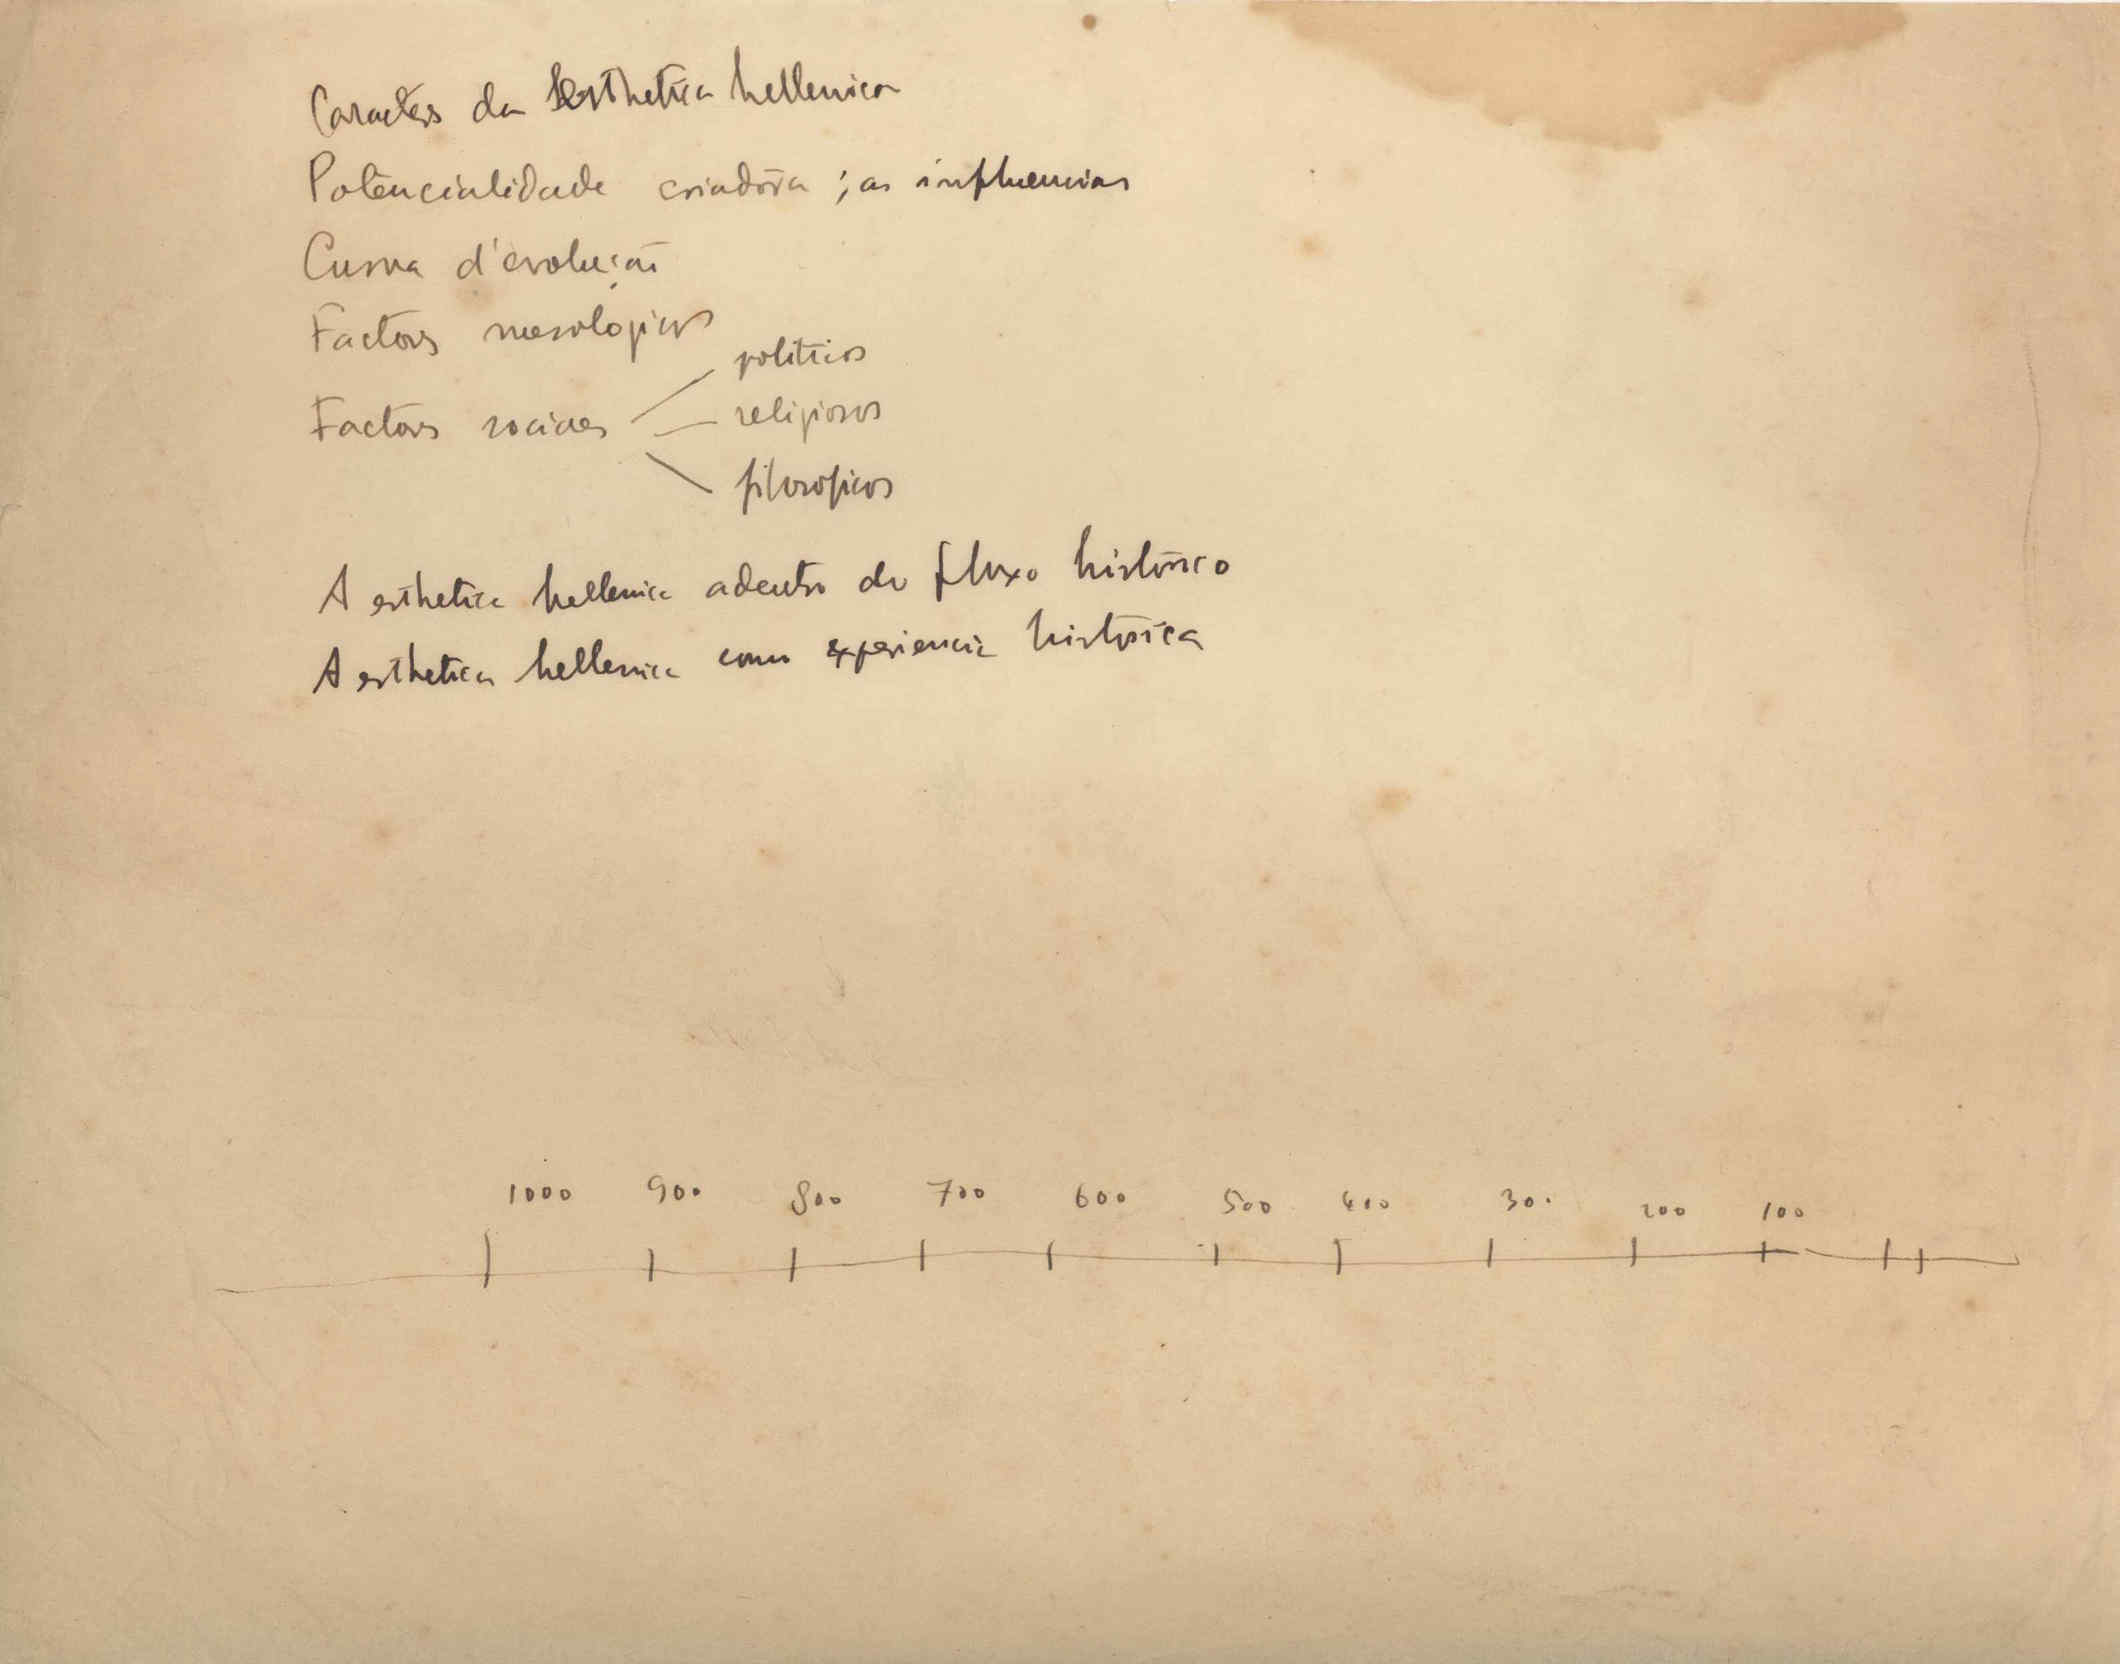 Caracters da Esthetica hellenica
Potencialidade criadora ; as influencias
Curva d'evolução
Factores mesologicos
Factores sociaes
politicos
religiosos
filosoficos
A esthetica hellenica adentro do fluxo histórico
A esthetica hellenica como experiencia histórica
1000 900 800 700 600 500 400 300 200 100